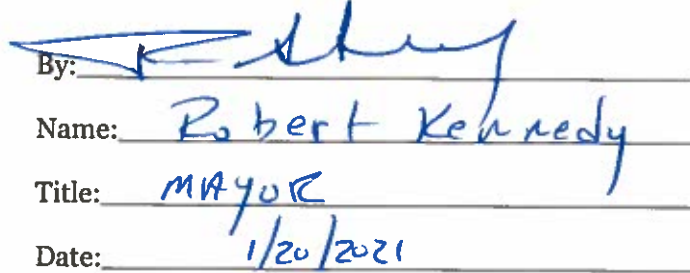 By:
Name: Robert Kennedy
Title: MAYOR
Date: 1/20/2021